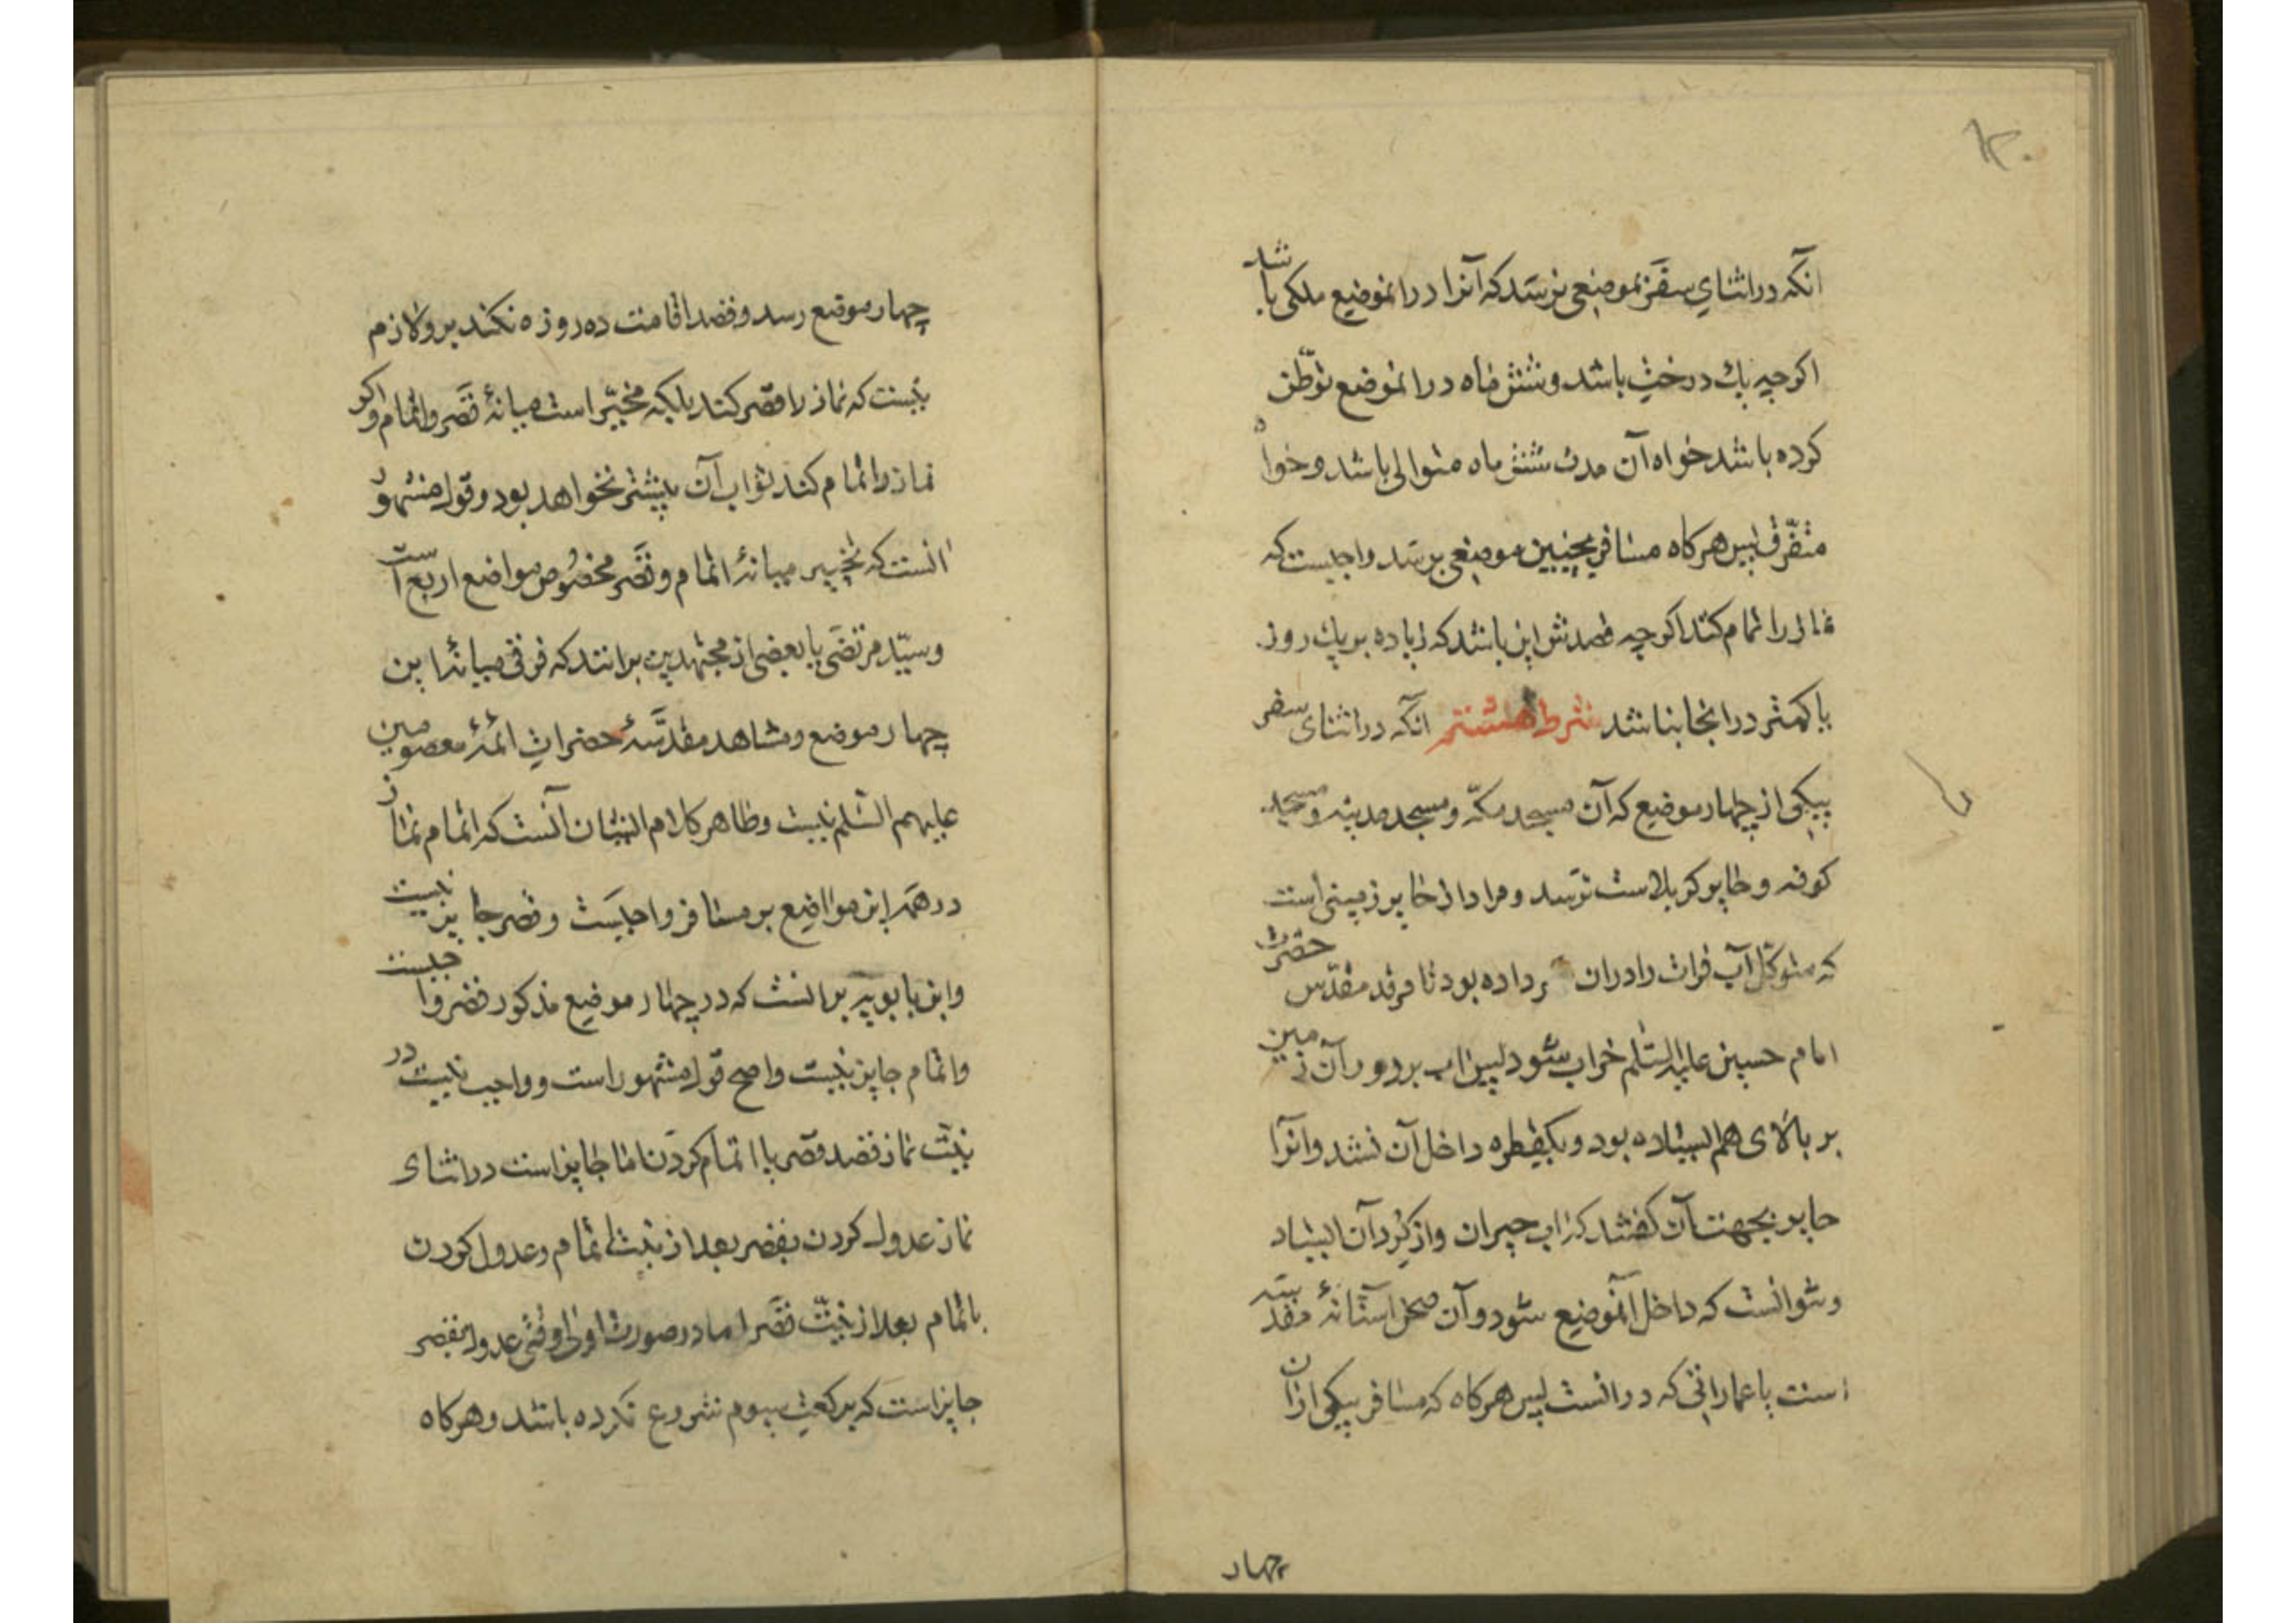 آنکه در اثنای سفر بموضعی نرسد که آنرا در انموضع ملکی باشد
اکر چه یك درخت باشد و شش ماه در انموضع توطّن
کرده باشد خواه آن مدت شش ماه متوالی باشد و خواه
متفرّق پس هرکاه مسافر بچنین موضعی برسد واجبست که
نماز را تمام کند اکر چه قصدش این باشد که زیاده بر یك روز
یا کمتر در انجا نباشد شرط هشتم آنکه در اثنای سفر
بیکی از چهار موضع که آن مسجد مکّه و مسجد مدینه و مسجد
کوفه و حایر کربلاست نرسد و مراد از حایر زمینی است
که متوکّل آب فرات را دران سر داده بود تا مرقد مقدّس حضرت
امام حسین علیه السّلم خراب شود پس اب بر دور آن زمین
بر بالای هم ایستاده بود و یکقطره داخل آن نشد وانرا
حایر بجهت آن کفتند که اب حیران واز کرد آن ایستاد
و نتوانست که داخل آنموضع شود و آن صحن آستانهٔ مقدسه
است با عماراتی که در انست پس هرکاه که مسافر بیکی از ان
چهار
چهار موضع رسد و قصد اقامت ده روزه نکند برو لازم
نیست که نماز را قصر کند بلکه مخیّر است میانهٔ قصر و اتمام واکر
نماز را تمام کند ثواب آن بیشتر خواهد بود و قول مشهور
انست که تخییر میانهٔ اتمام و قصر مخصوص مواضع اربع است
و سیّد مرتضی با بعضی از مجتهدین برانند که فرقی میانهٔ این
چهار موضع و مشاهد مقدّسهٔ حضرات ائمهٔ معصومین
علیهم السّلم نیست و ظاهر کلام ایشان آنست که اتمام نماز
در همهٔ این مواضع بر مسافر واجبست و قصر جایز نیست
وابن بابویه برانست که در چهار موضع مذکور قصر واجبست
واتمام جایز نیست واصح قول مشهور است و واجب نیست در
نیّت نماز قصد قصر یا اتمام کردن اما جایز است در اثنای
نماز عدول کردن بقصر بعد از نیت اتمام و عدول کردن
باتمام بعد از نیّت قصر اما در صورت اولی وقتی عدول بقصر
جایز است که برکعت سیوم شروع نکرده باشد و هرکاه